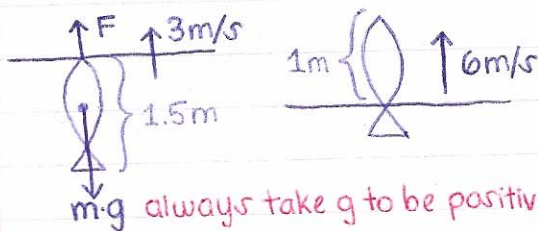 F 3m/s
1m 6m/s
1.5m
m·g always take g to be positiv